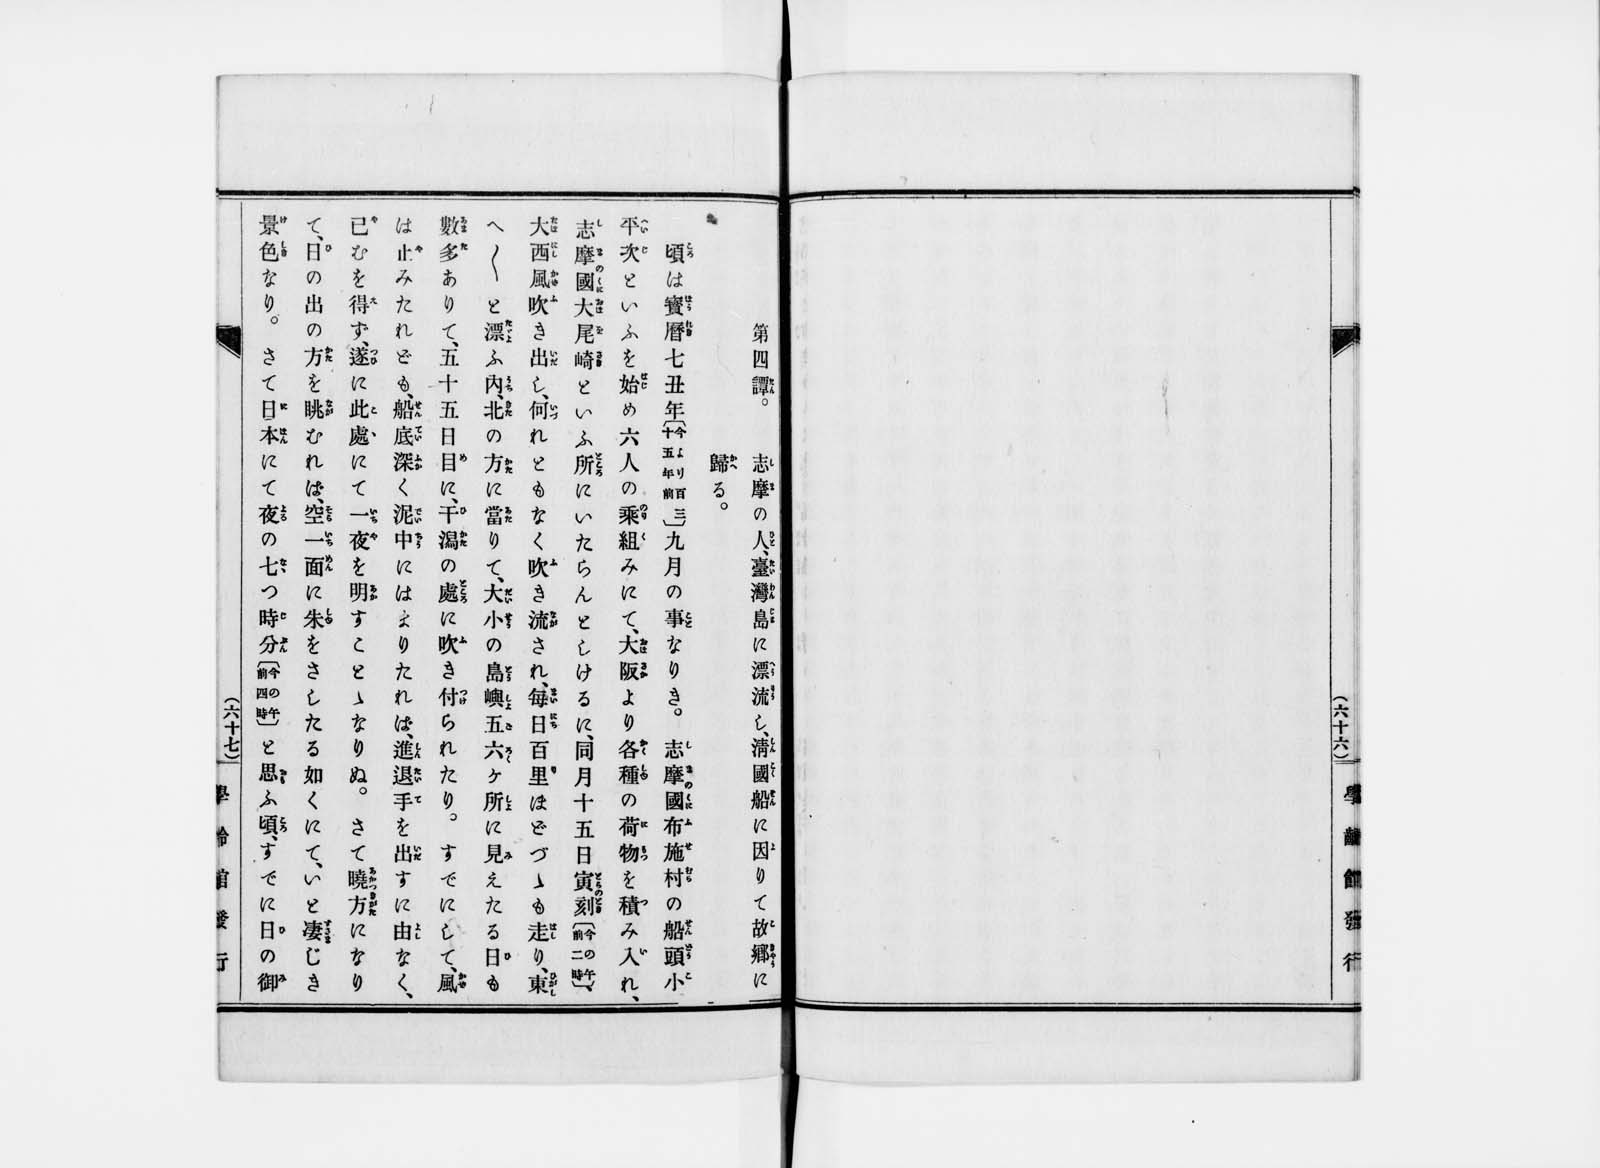 （六十六）
學齡館發行
第四譚。　志摩の人、臺灣島に漂流し、淸國船に因りて故鄕に
歸る。
頃は寳曆七丑年〔今より百三十五年前〕九月の事なりき。志摩國布施村の船頭小
平次といふを始め六人の乘組みにて、大阪より各種の荷物を積み入れ、
志摩國大尾崎といふ所にいたらんとしけるに、同月十五日寅刻〔今の午前二時〕、
大西風吹き出し、何れともなく吹き流され、每日百里ほどづゝも走り、東
へ〱と漂ふ內、北の方に當りて、大小の島嶼五六ヶ所に見えたる日も
數多ありて、五十五日目に、干潟の處に吹き付られたり。すでにして、風
は止みたれども、船底深く泥中にはまりたれば、進退手を出すに由なく、
已むを得ず、遂に此處にて一夜を明すことゝなりぬ。さて曉方になり
て、日の出の方を眺むれば、空一面に朱をさしたる如くにて、いと凄じき
景色なり。さて日本にて夜の七つ時分〔今の午前四時〕と思ふ頃、すでに日の御
（六十七）
學齡館發行